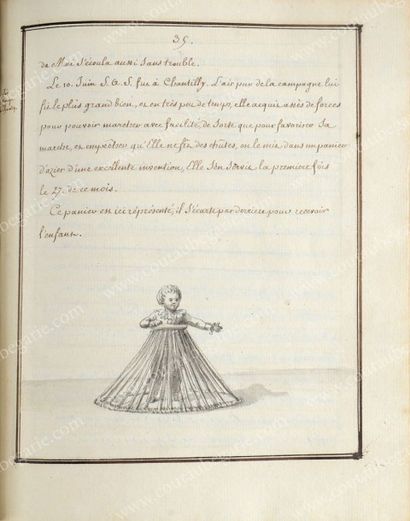 35.
de Mai s'écoula aussi sans trouble.
Le 10. Juin S. A. S. fut à Chantilly. l'air pur de la campagne lui
fit le plus grand bien, et en très peu de temps, elle acquit assés de forces
pour pouvoir marcher avec facilité, de sorte que pour favoriser sa
marche, et empêcher qu'Elle ne fit des chûtes, on la mis dans un panier
d'ozier d'une excellente invention, Elle s'en servit la première fois
le 27. de ce mois.
Ce panier est ici réprésenté, il s'écarte par derriere pour recevoir
l'enfant.